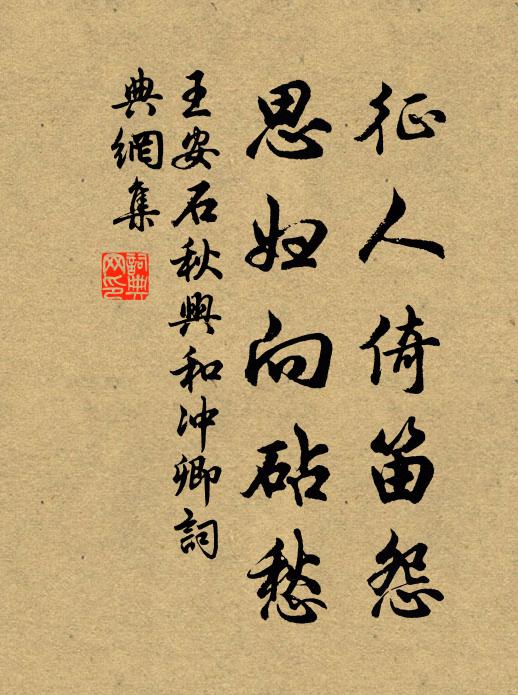 征人倚笛怨
思妇向砧愁
王安石秋興和冲卿詞
典網集
詞典
网印